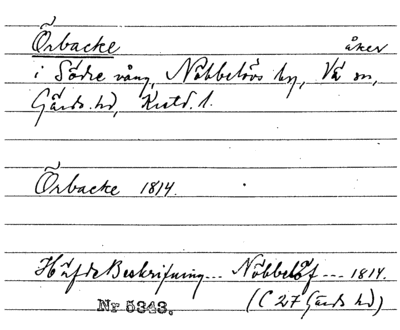 Örbacke åker
i Södre vång, Nöbbelövs by, Vä sn,
Gärds hd, Kristd. l.
Örbacke 1814.
Häfde Beskrifning... Nöbbelöf --- 1814.
Nr 5343. (C 27 Gärds hd)